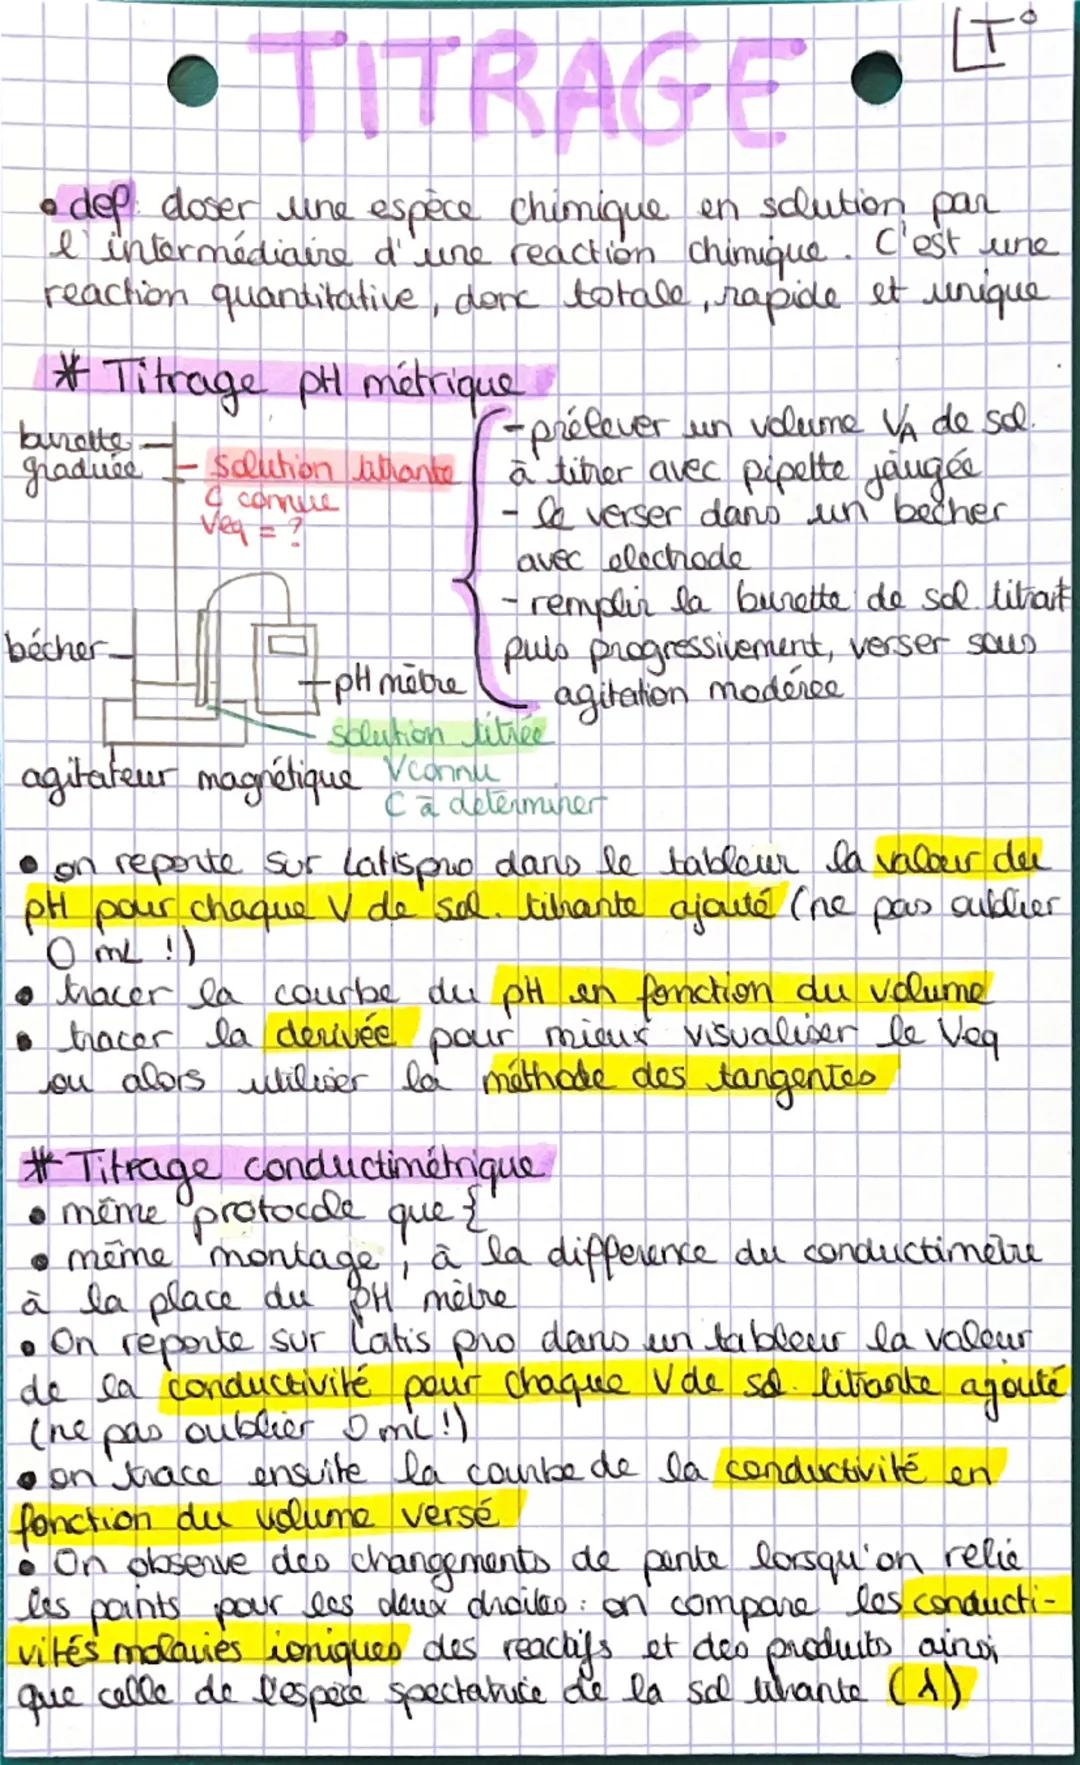 TITRAGE
T°
• def: doser une espèce chimique en solution par
l'intermédiaire d'une reaction chimique. C'est une
reaction quantitative, donc totale, rapide et unique
* Titrage pH métrique
burette
graduée
solution titrante
C connue
Veq = ?
bécher
pH mètre
solution titrée
V connu
C à déterminer
agitateur magnétique
- prélever un volume VA de sol.
à titrer avec pipette jaugée
- le verser dans un becher
avec electrode
- remplir la burette de sol. titrait
puis progressivement, verser sous
agitation modérée
• on reporte sur Latispro dans le tableur la valeur du
pH pour chaque V de sol. titrante ajouté (ne pas oublier
0 mL !)
• tracer la courbe du pH en fonction du volume
• tracer la derivée pour mieux visualiser le Veq
ou alors utiliser la méthode des tangentes
* Titrage conductimétrique
• même protocole que {
• même montage, à la difference du conductimetre
à la place du pH mètre
• On reporte sur Latis pro dans un tableur la valeur
de la conductivité pour chaque V de sol. titrante ajouté
(ne pas oublier 0 mL!)
• on trace ensuite la courbe de la conductivité en
fonction du volume versé
• On observe des changements de pente lorsqu'on relie
les points pour les deux droites : on compare les conducti-
vités molaires ioniques des reactifs et des produits ainsi
que celle de l'espèce spectatrice de la sol titrante (λ)